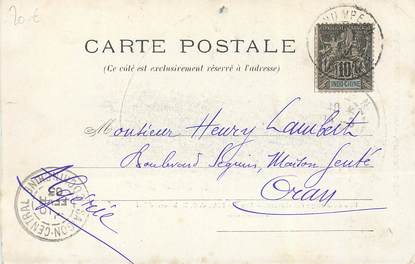 20 €
CARTE POSTALE
(Ce côté est exclusivement réservé à l'adresse)
10
INDO-CHINE
Monsieur Henry Lambert
Boulevard Seguin, Maison Genté
Oran
Algérie
GON-CENTRAL